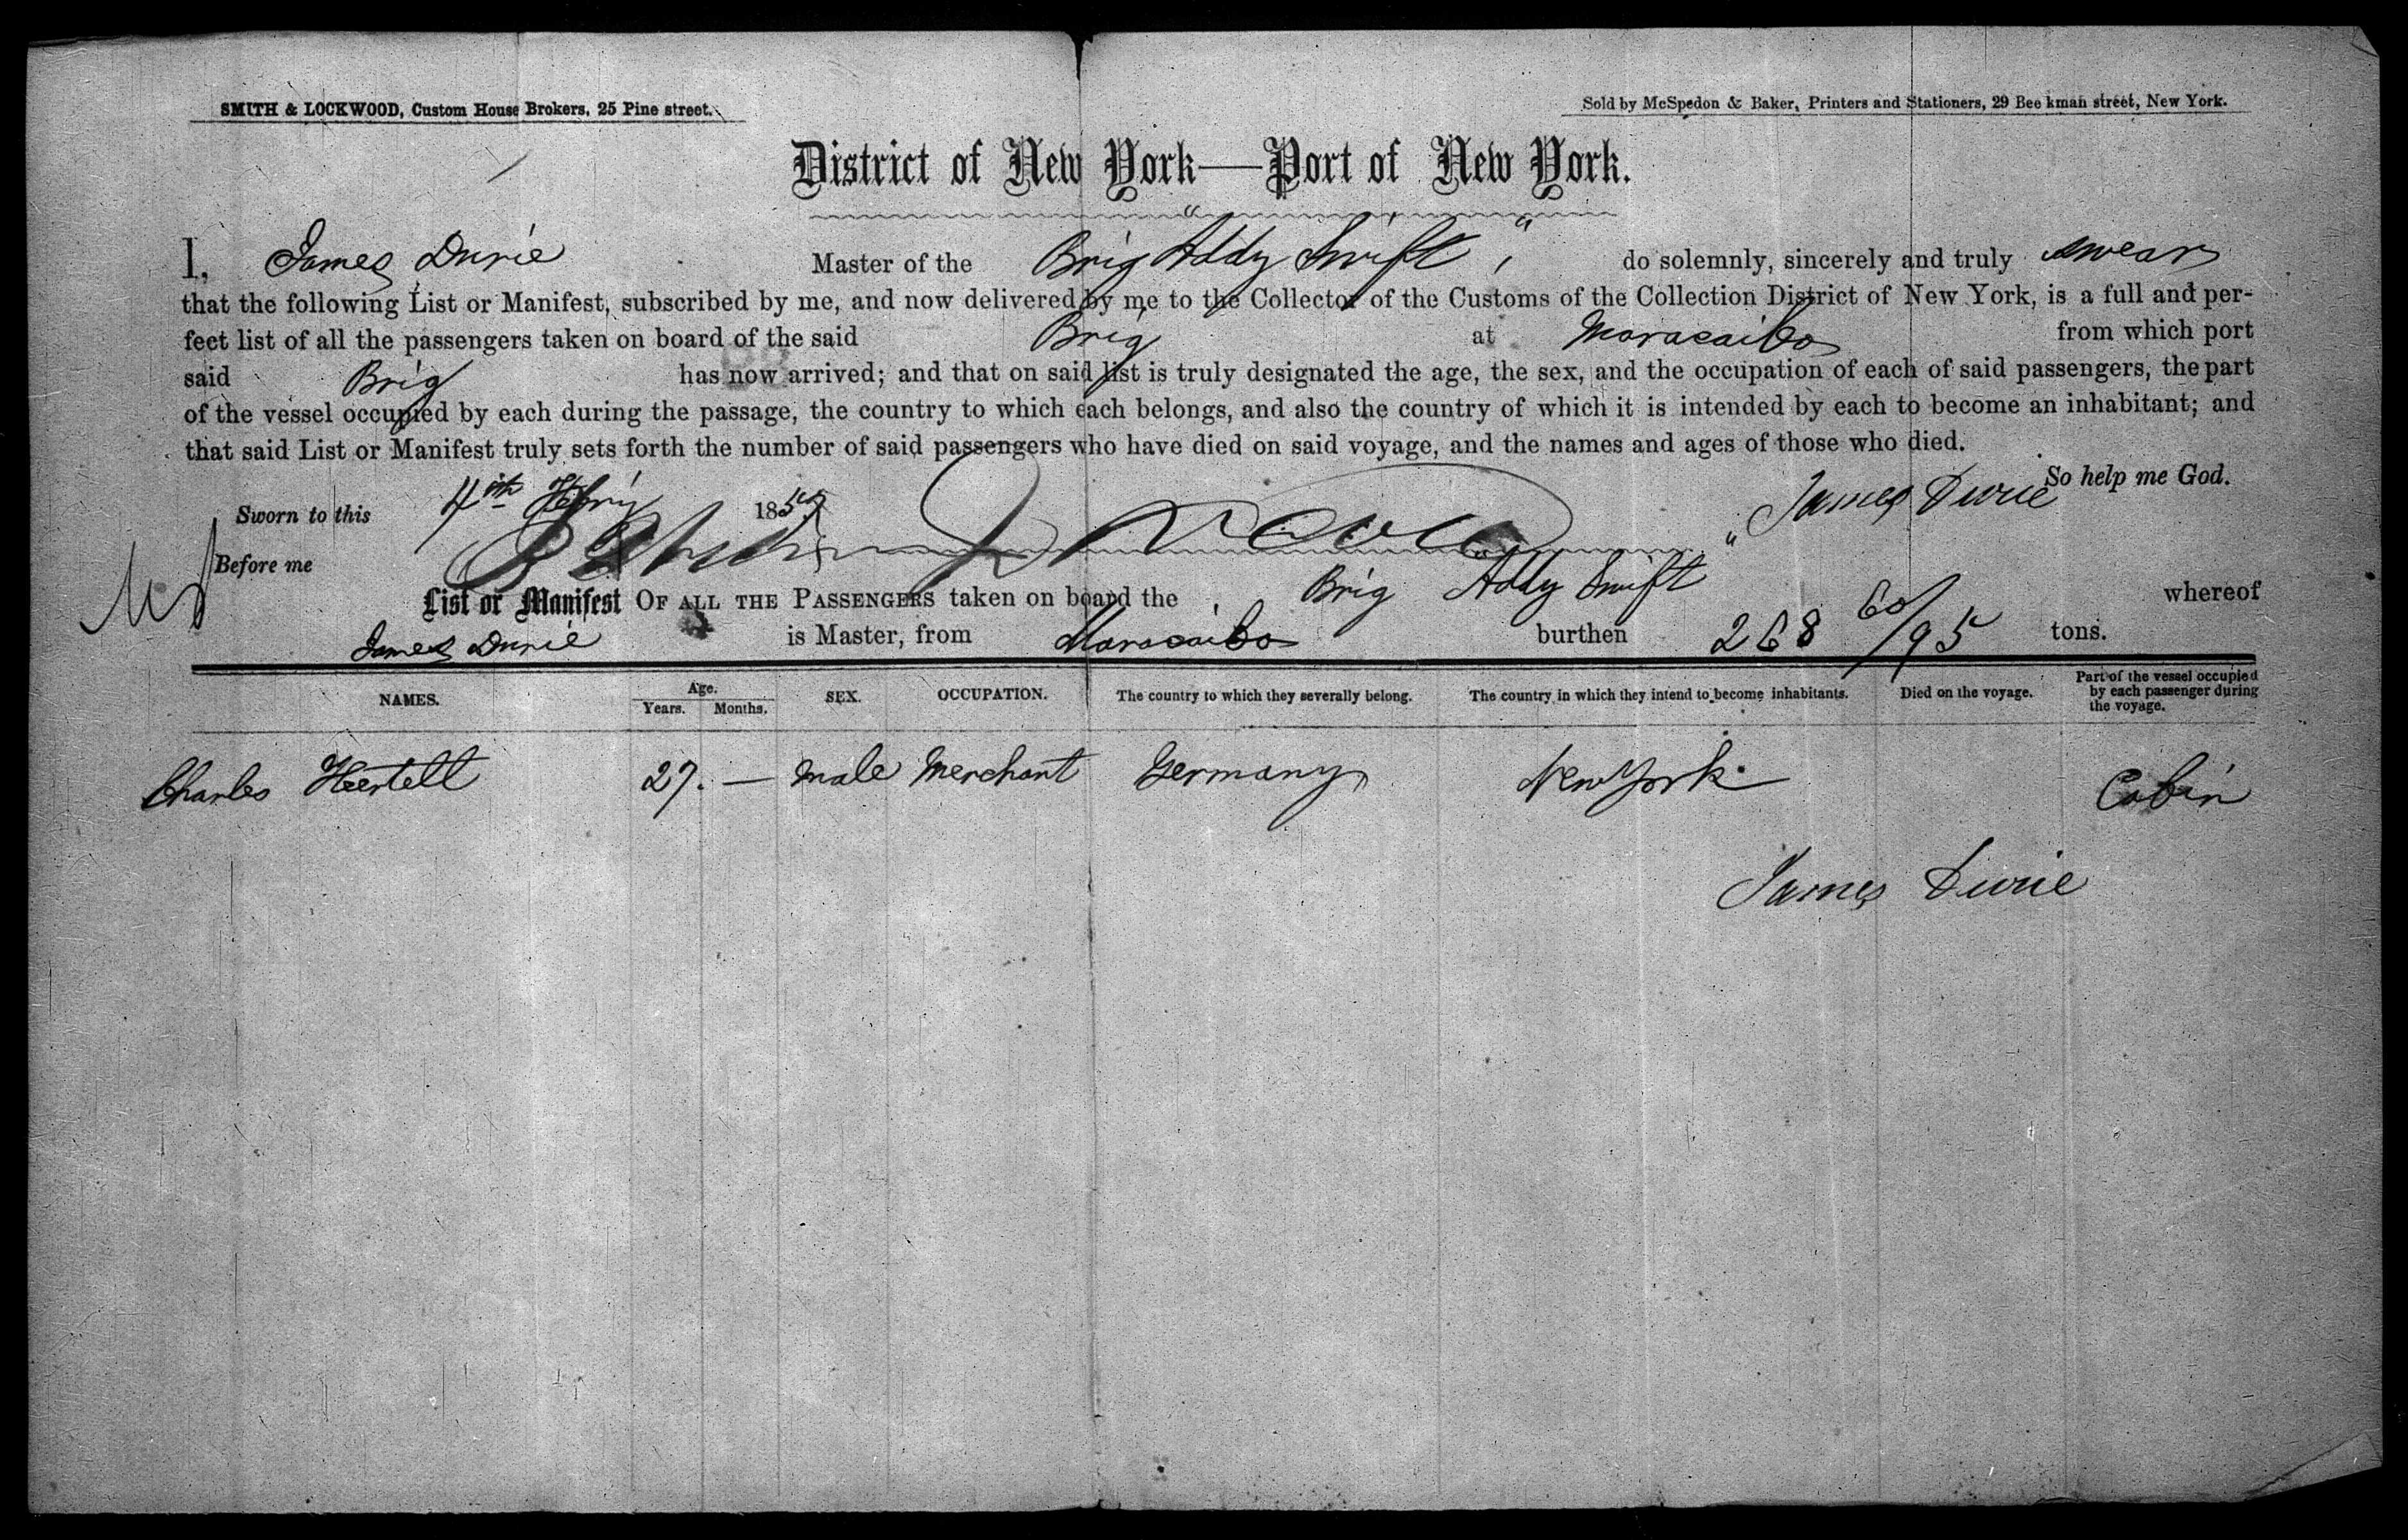 SMITH & LOCKWOOD, Custom House Brokers, 25 Pine street.
Sold by McSpedon & Baker, Printers and Stationers, 29 Bee kman street, New York.
District of New York—Port of New York.
I, James Durie Master of the Brig "Addy Swift", do solemnly, sincerely and truly swear
that the following List or Manifest, subscribed by me, and now delivered by me to the Collector of the Customs of the Collection District of New York, is a full and per-
fect list of all the passengers taken on board of the said Brig at Maracaibo from which port
said Brig has now arrived; and that on said list is truly designated the age, the sex, and the occupation of each of said passengers, the part
of the vessel occupied by each during the passage, the country to which each belongs, and also the country of which it is intended by each to become an inhabitant; and
that said List or Manifest truly sets forth the number of said passengers who have died on said voyage, and the names and ages of those who died.
So help me God.
Sworn to this 4th Febry 1857 James Durie
Before me
List or Manifest OF ALL THE PASSENGERS taken on board the Brig "Addy Swift" whereof
James Durie is Master, from Maracaibo burthen 268 60/95 tons.
NAMES. Age. Years. Months. SEX. OCCUPATION. The country to which they severally belong. The country in which they intend to become inhabitants. Died on the voyage. Part of the vessel occupied by each passenger during the voyage.
Charles Hertell 27. — male Merchant Germany New York Cabin
James Durie